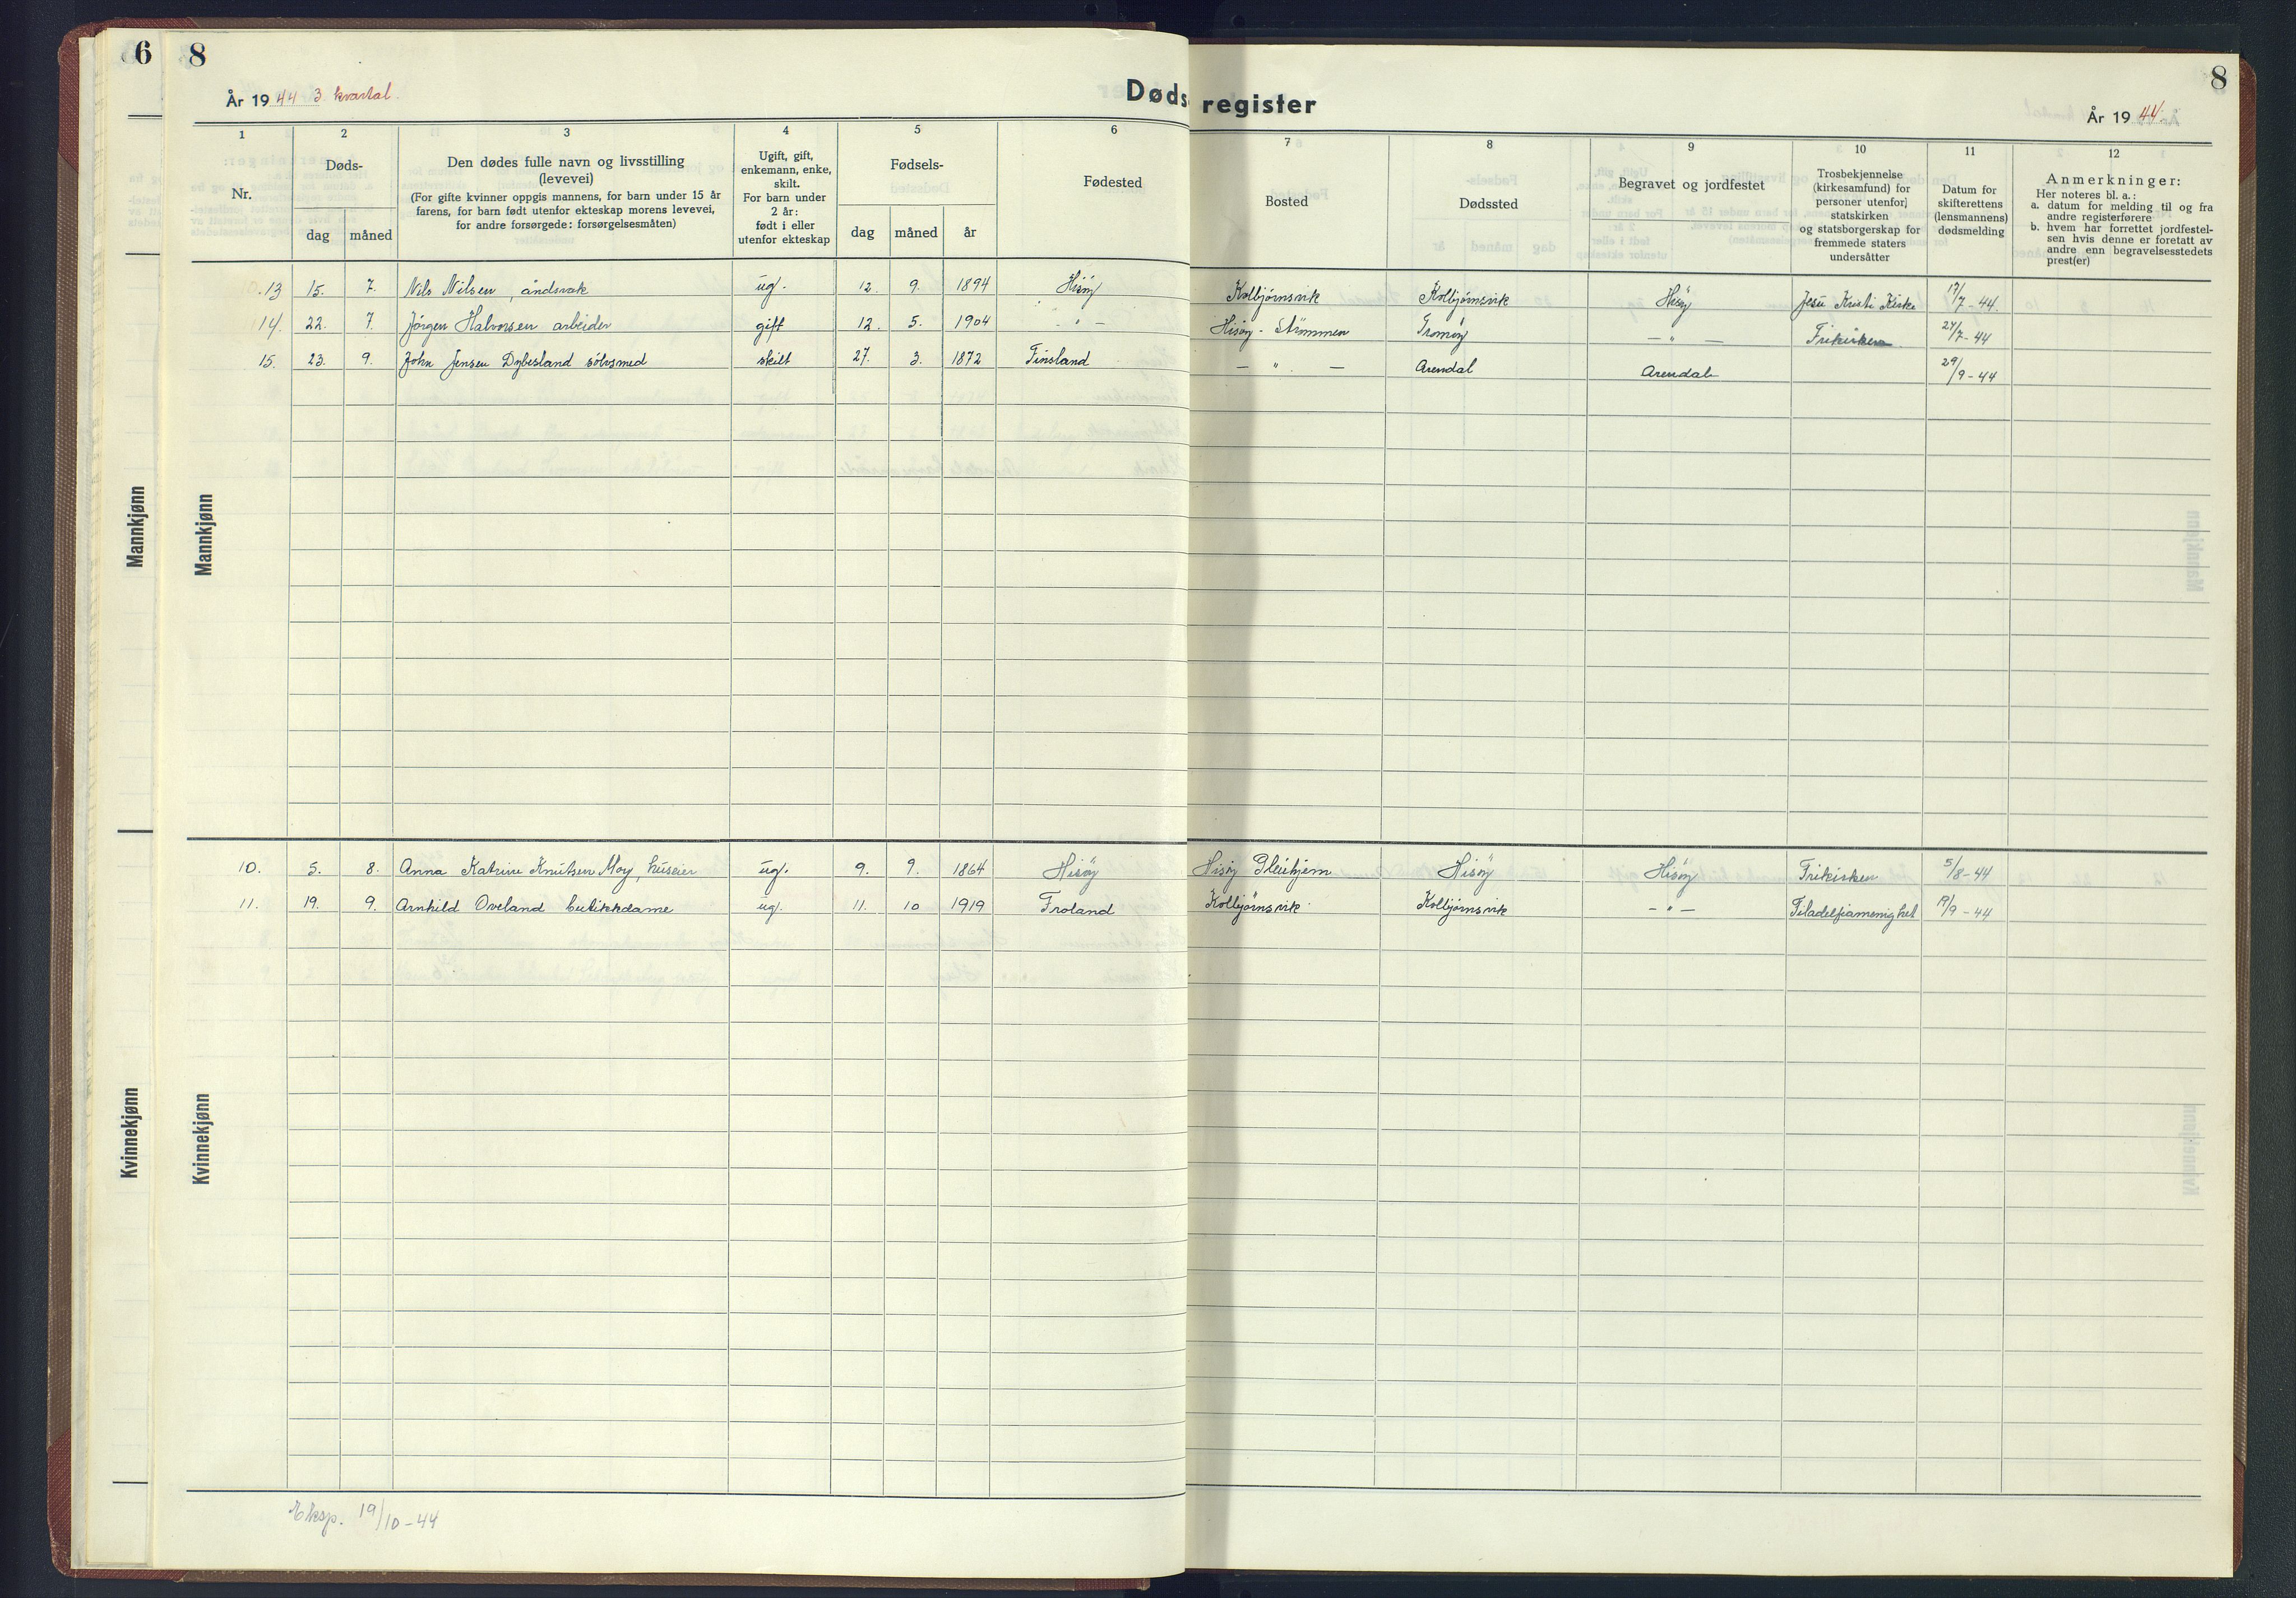 6
8
År 19 44 3 kvartal.
Dødsregister
År 19 44.
8
1 2 3 4 5 6 7 8 9 10 11 12
Nr.
Døds-
dag måned
Den dødes fulle navn og livsstilling
(levevei)
(For gifte kvinner oppgis mannens, for barn under 15 år
farens, for barn født utenfor ekteskap morens levevei,
for andre forsørgede: forsørgelsesmåten)
Ugift, gift,
enkemann, enke,
skilt.
For barn under
2 år:
født i eller
utenfor ekteskap
Fødsels-
dag måned år
Fødested
Bosted
Dødssted
Begravet og jordfestet
Trosbekjennelse
(kirkesamfund) for
personer utenfor
statskirken
og statsborgerskap for
fremmede staters
undersåtter
Datum for
skifterettens
(lensmannens)
dødsmelding
Anmerkninger:
Her noteres bl. a.:
a. datum for melding til og fra
andre registerførere
b. hvem har forrettet jordfestel-
sen hvis denne er foretatt av
andre enn begravelsesstedets
prest(er)
13 15. 7. Nils Nilsen, åndsvak ug. 12. 9. 1894 Hisøy Kolbjørnsvik Kolbjørnsvik Hisøy Jesu Kristi Kirke 17/7-44.
14. 22. 7. Jørgen Halvorsen arbeider gift 12. 5. 1904 - " - Hisøy - Strømmen Tromøy - " - Frikirken 24/7-44
15. 23. 9. John Jensen Dybesland sølvsmed skilt 27. 3. 1872 Finsland - " - Arendal Arendal 29/9-44
Mannkjønn
Mannkjønn
10. 5. 8. Anna Katrine Knutsen Moy, huseier ug. 9. 9. 1864 Hisøy Hisøy Pleiehjem Hisøy Hisøy Frikirken 5/8-44
11. 19. 9. Arnhild Oveland butikkdame ug. 11. 10 1919 Froland Kolbjørnsvik Kolbjørnsvik - " - Filadelfiamenighet 19/9-44
Kvinnekjønn
Kvinnekjønn
Eksp. 19/10-44